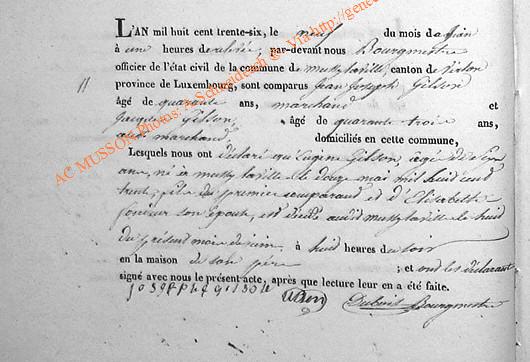 L'AN mil huit cent trente-six, le neuf du mois de Juin
à une heures de relevée, par-devant nous Bourgmestre
officier de l'état civil de la commune de mussy laville, canton de virton
11 province de Luxembourg, sont comparus Jean Joseph Gilson
âgé de quarante ans, marchand et
Jacques Gilson, âgé de quarante trois ans,
marchand domiciliés en cette commune,
Lesquels nous ont déclaré que Eugène Gilson, agé de
ans, né à mussy laville le douze mai mil huit cent
trente, fils du premier comparant et d'Elisabeth
son épouse, est décédé audit mussy laville le huit
du présent mois de juin, à huit heures du soir
en la maison de son père ; et ont les déclarant
signé avec nous le présent acte, après que lecture leur en a été faite.
Dubois Bourgmestre
AC MUSSON Photos: A. Schneidesch © Via http://gene